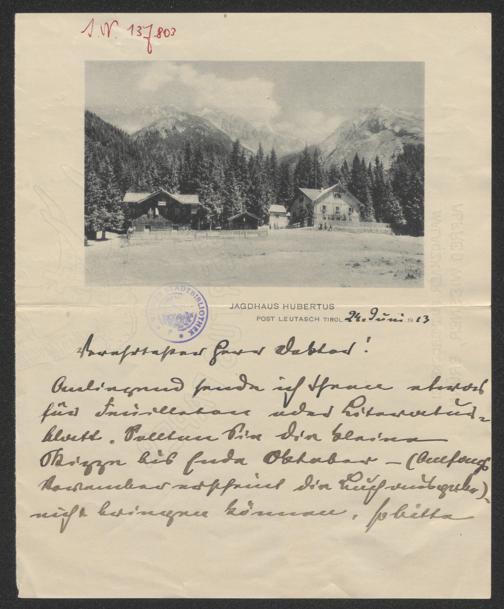 J. N. 137803
STADTBIBLIOTHEK
JAGDHAUS HUBERTUS
POST LEUTASCH TIROL 24. Juni 1913
Verehrtester Herr Doktor!
Anliegend sende ich Ihnen etwas
für Feuilleton oder Literatur-
blatt. Sollten Sie die kleine
Skizze bis Ende Oktober – (Anfang
November erscheint die Buchausgabe)
nicht bringen können, so bitte